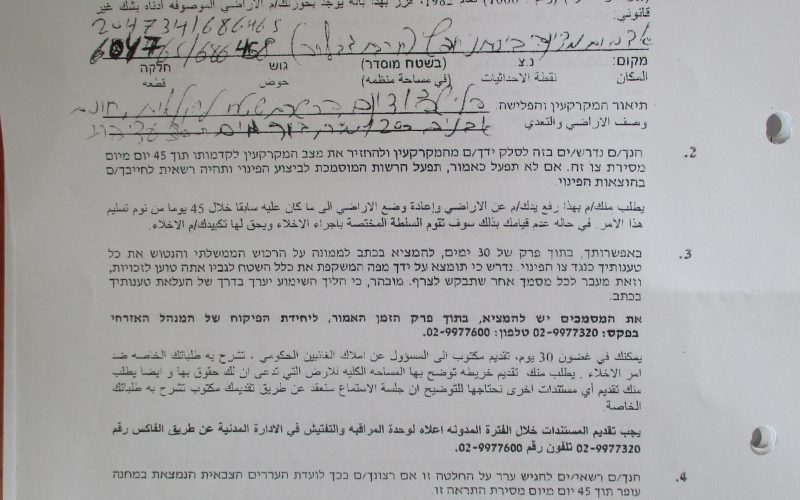 קانوني.
2047341/686465
6047 /686465
מקום: נ.צ (בשטח מוסדר) גוש חלקה
המכאן نقطة الاحداثيات (في مساحة منظمه) حوض قطعه
תיאור המקרקעין והפלישה:
وصف الاراضي والتعدي
2. הנך/ם נדרש/ים בזה לסלק ידך/ם מהמקרקעין ולהחזיר את מצב המקרקעין לקדמותו תוך 45 יום מיום
מסירת צו זה. אם לא תפעל כאמור, תפעל הרשות המוסמכת לביצוע הפינוי ותהיה רשאית לחייבך/ם
בהוצאות הפינוי.
يطلب منك/م بهذا رفع يدك/م عن الاراضي وإعادة وضع الاراضي الى ما كان عليه سابقا خلال 45 يوما من نوم تسليم
هذا الامر. في حاله عدم قيامك بذلك سوف تقوم السلطة المختصة باجراء الاخلاء ويحق لها تكبيدك/م الاخلاء.
3. באפשרותך, בתוך פרק של 30 ימים, להמציא בכתב לממונה על הרכוש הממשלתי והנטוש את כל
טענותיך כנגד צו הפינוי. נדרש כי תומצא על ידך מפה המשקפת את כלל השטח לגביו אתה טוען לזכויות,
וזאת מעבר לכל מסמך אחר שתבקש לצרף. מובהר, כי הליך השימוע יערך בדרך של העלאת טענותיך
בכתב.
את המסמכים יש להמציא, בתוך פרק הזמן האמור, ליחידת הפיקוח של המנהל האזרחי
בפקס: 02-9977320 טלפון: 02-9977600.
يمكنك في غضون 30 يوم، تقديم مكتوب الى المسؤول عن املاك الغائبين الحكومي ، تشرح به طلباتك الخاصه ضد
امر الاخلاء . يطلب منك تقديم خريطه توضح بها المساحه الكليه للارض التي تدعى ان لك حقوق بها و ايضا يطلب
منك تقديم أي مستندات اخرى تحتاجها للتوضيح ان جلسة الاستماع ستعقد عن طريق تقديمك مكتوب تشرح به طلباتك
الخاصية
يجب تقديم المستندات خلال الفترة المدونه اعلاه لوحدة المراقبه والتفتيش في الادارة المدنية عن طريق الفاكس رقم
02-9977320 تلفون رقم 02-9977600
4. הנך/ם רשאי/ים להגיש ערר על החלטה זו אם רצונך/ם בכך לועדת העררים הצבאית הנמצאת במחנה
עופר תוך 45 יום מיום מסירת התראה זו.